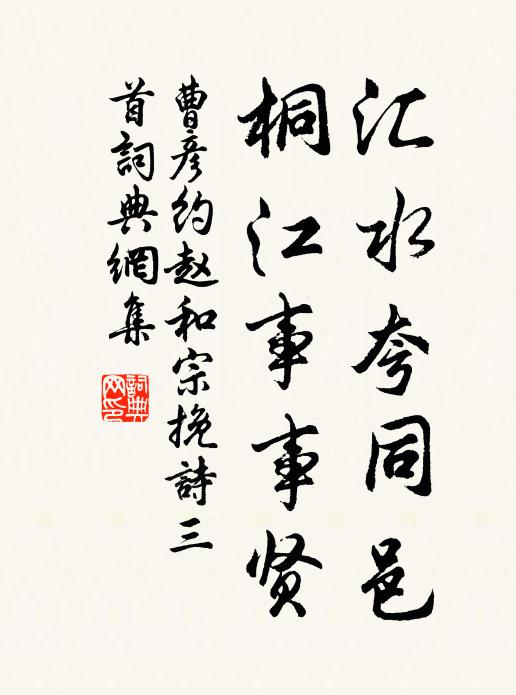 汇水夸同邑
桐江事事贤
曹彦约赵和宗挽詩三
首詞典網集
詞典网印